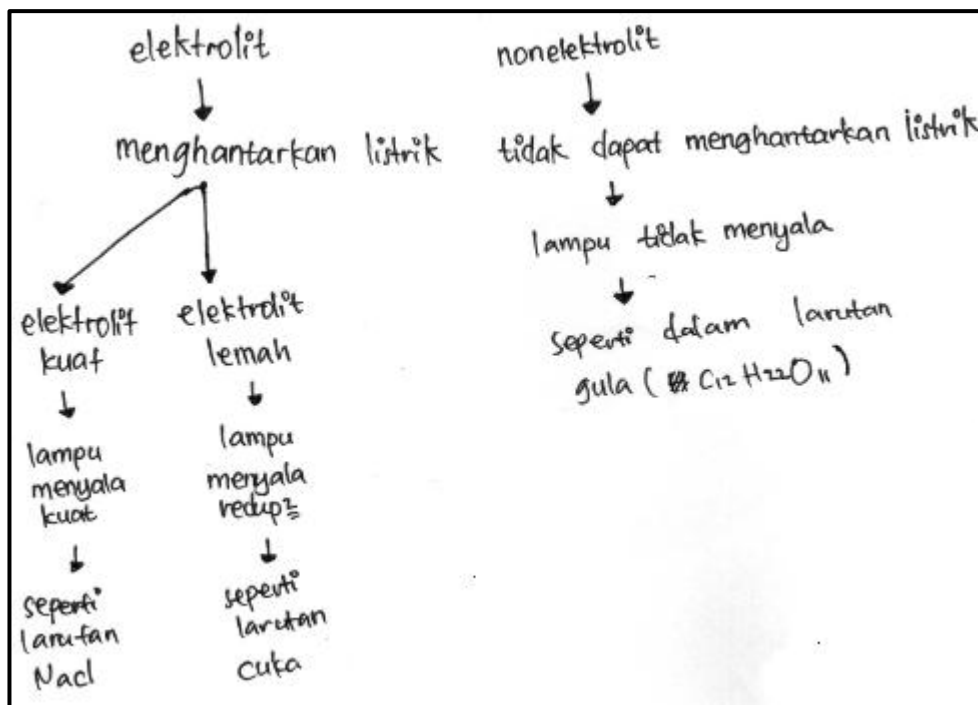 elektrolit
menghantarkan listrik
elektrolit
kuat
lampu
menyala
kuat
seperti
larutan
Nacl
elektrolit
lemah
lampu
menyala
redup2
seperti
larutan
cuka
nonelektrolit
tidak dapat menghantarkan listrik
lampu tidak menyala
seperti dalam larutan
gula ( C12H22O11)